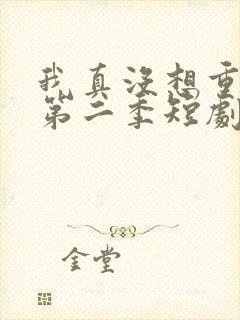 我真没想重
第二季短劇
金堂